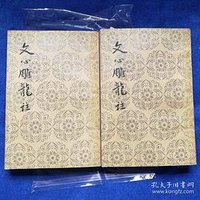 文心雕龍注
文心雕龍注
孔夫子旧书网